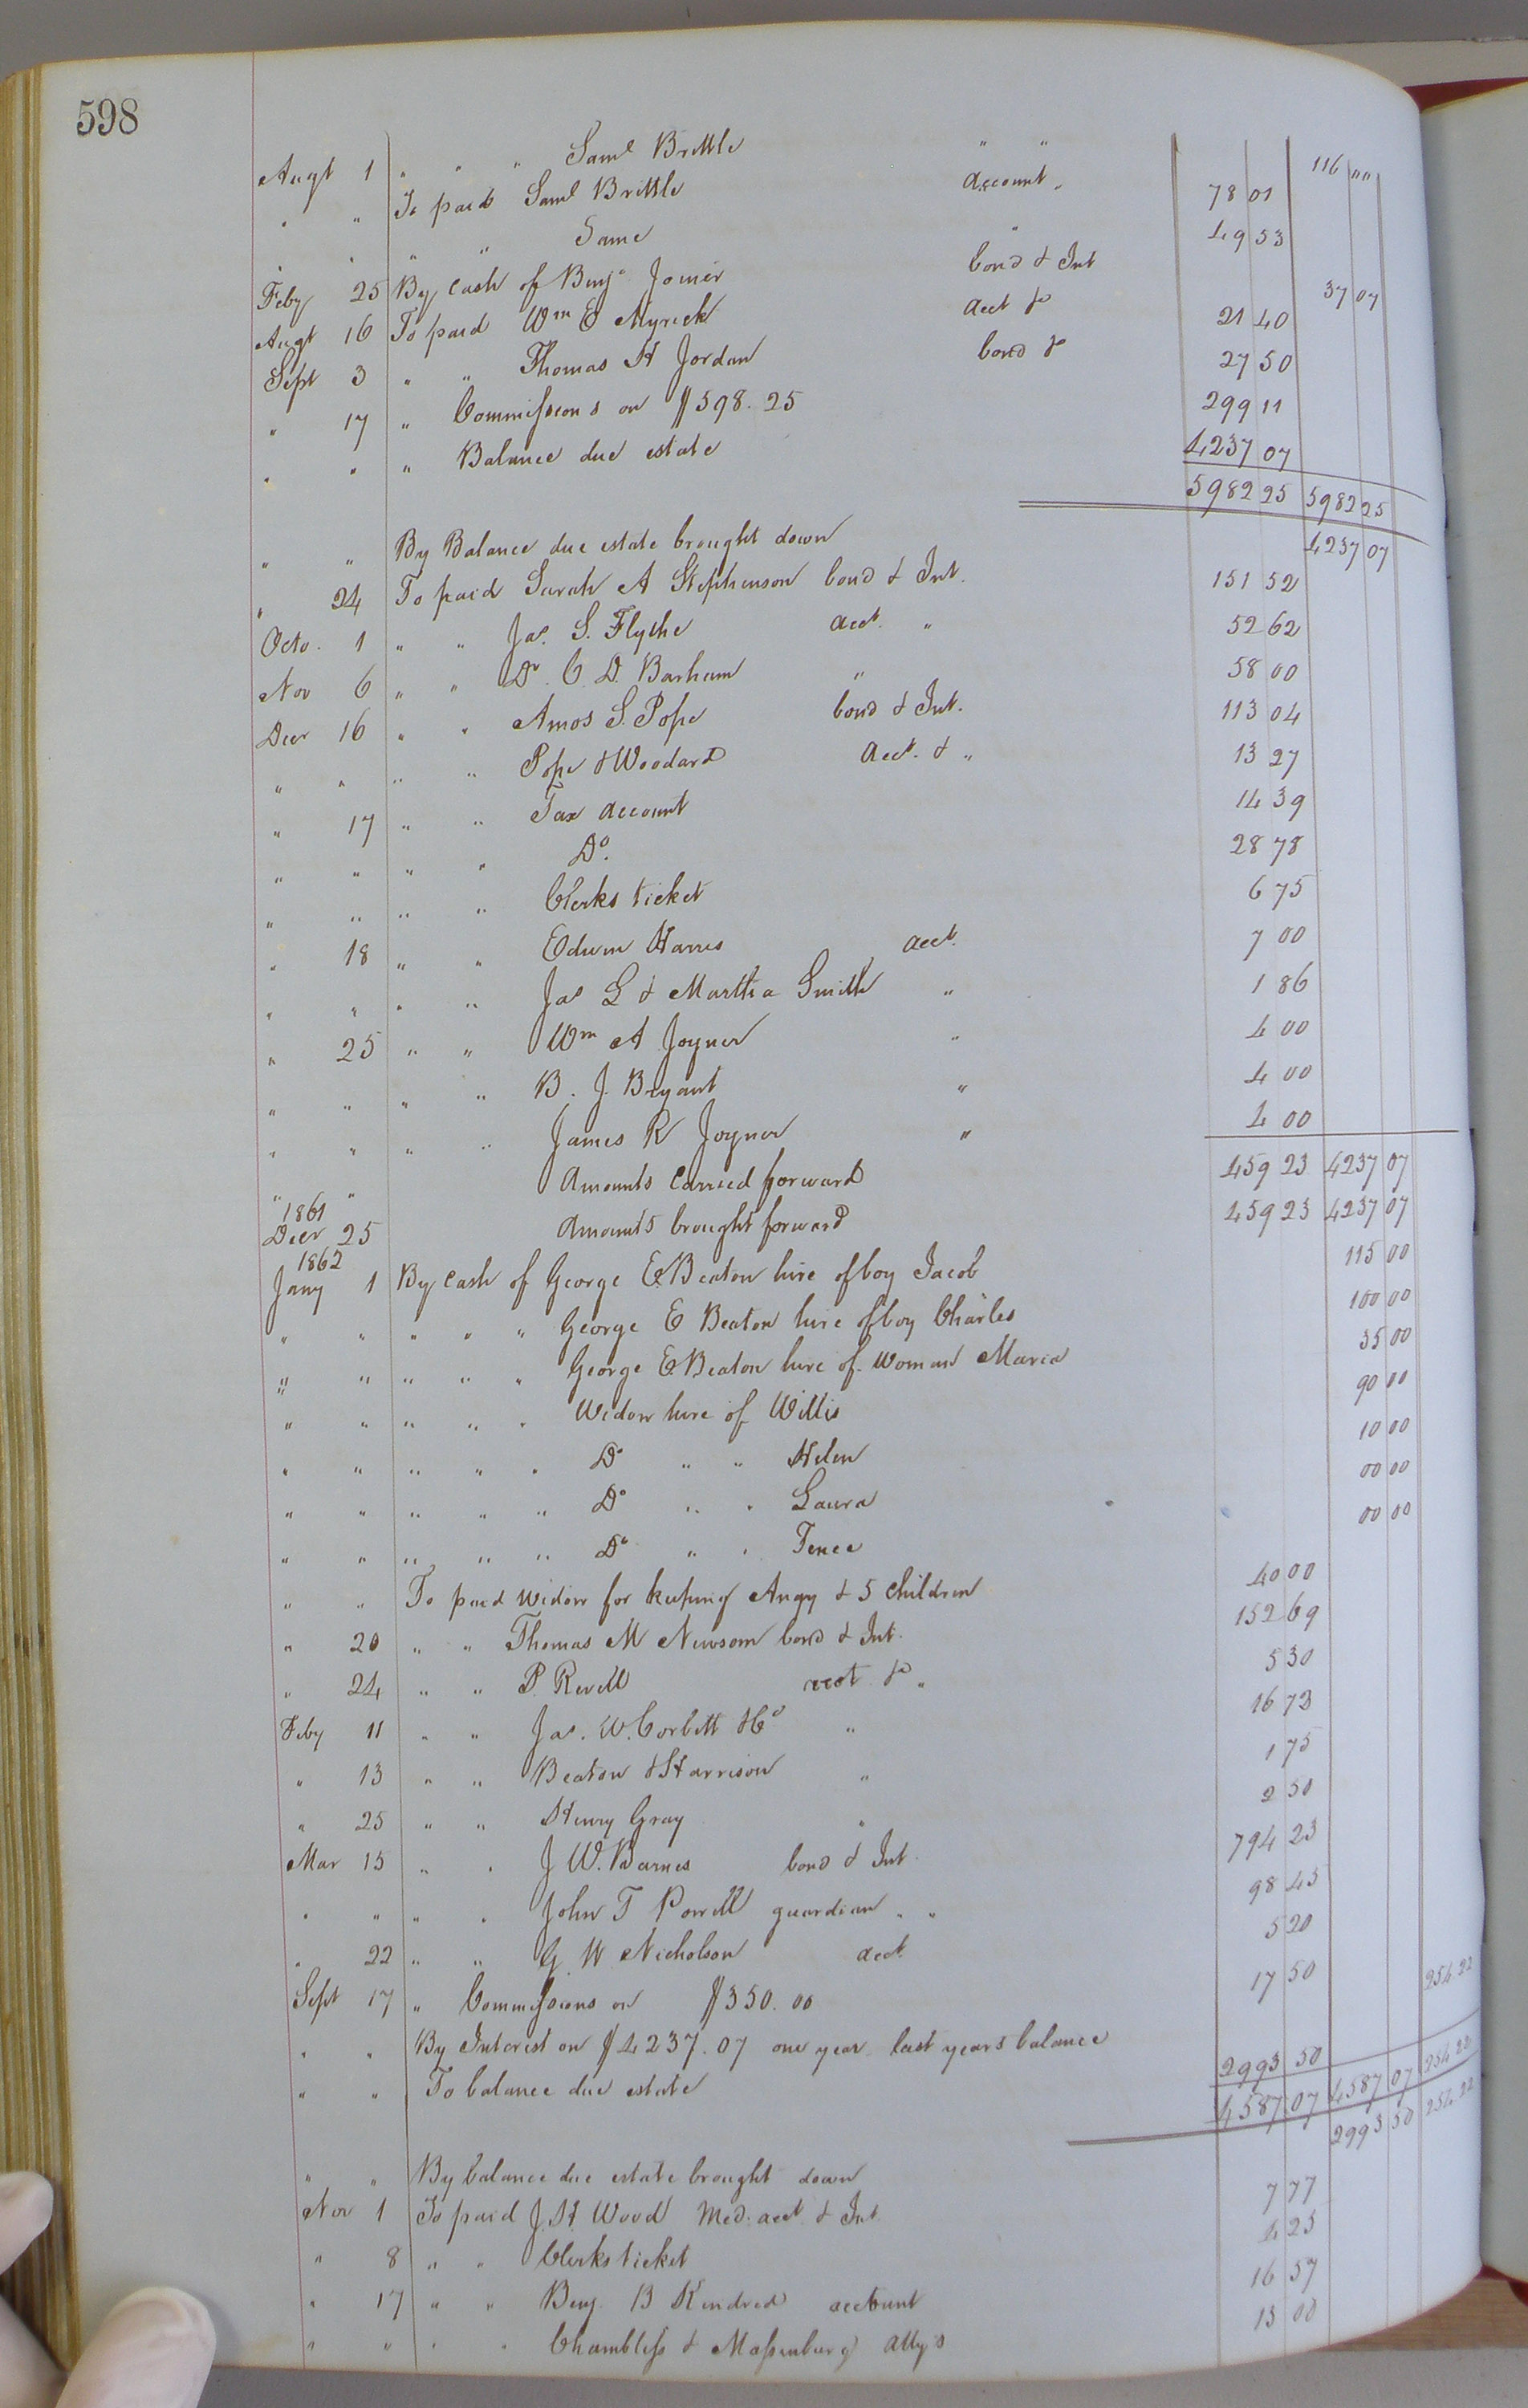 598
Augt 1 " " " Saml Brittle " " 116 " "
" " To paid Saml Brittle account " 78 01
" " " " Same " 49 53
Feby 25 By cash of Benja Joiner bond & Int 37 07
Augt 16 To paid Wm E Myrick acct & 21 40
Sept 3 " " Thomas H Jordan bond & 27 50
" 17 " Commissions on $598.25 299 11
" " " Balance due estate 4237 07
5982 25 5982 25
" " By Balance due estate brought down 4237 07
" 24 To paid Sarah A Stephenson bond & Int. 151 52
Octo. 1 " " Jas. S. Flythe acct. " 52 62
Nov 6 " " Dr. C. D. Barham " 58 00
Decr 16 " " Amos S. Pope bond & Int. 113 04
" " " " Pope & Woodard Acct. & " 13 27
" 17 " " Tax account 14 39
" " " " Do. 28 78
" " " " Clerks ticket 6 75
" 18 " " Edwin Harris acct. 7 00
" " " " Jas L & Martha Smith " 1 86
" 25 " " Wm A Joyner " 4 00
" " " " B. J. Bryant " 4 00
" " " " James R Joyner " 4 00
" " Amounts Carried forward 459 23 4237 07
1861
Decr 25 Amounts brought forward 459 23 4237 07
1862
Jany 1 By cash of George E. Beaton hire of boy Jacob 115 00
" " " " " George E Beaton hire of boy Charles 100 00
" " " " " George E. Beaton hire of Woman Maria 35 00
" " " " " Widow hire of Willis 90 00
" " " " " Do " " Helen 10 00
" " " " " Do " " Laura 00 00
" " " " " Do " " Tence 00 00
" " To paid widow for keeping Angy & 5 children 40 00
" 20 " " Thomas M Newsom bond & Int. 152 69
" 24 " " P. Revell acct & " 5 30
Feby 11 " " Jas. W. Corbitt & Co " 16 73
" 13 " " Beaton & Harrison " 1 75
" 25 " " Henry Gray " 2 50
Mar 15 " " J W. Barnes bond & Int. 794 23
" " " " John T Powell guardian " " 98 45
" 22 " " G. W. Nicholson acct. 5 20
Sept 17 " Commissions on $350.00 17 50
" " By Interest on $4237.07 one year last years balance 254 22
" " To balance due estate 2993 50
4587 07 4587 07 254 22
" " By balance due estate brought down 2993 50 254 22
Nov 1 To paid J. H. Wood Med. acct & Int. 7 77
" 8 " " Clerks ticket 4 25
" 17 " " Benj. B Kindred account 16 57
" " " " Chambless & Massenburg Atty's 13 00